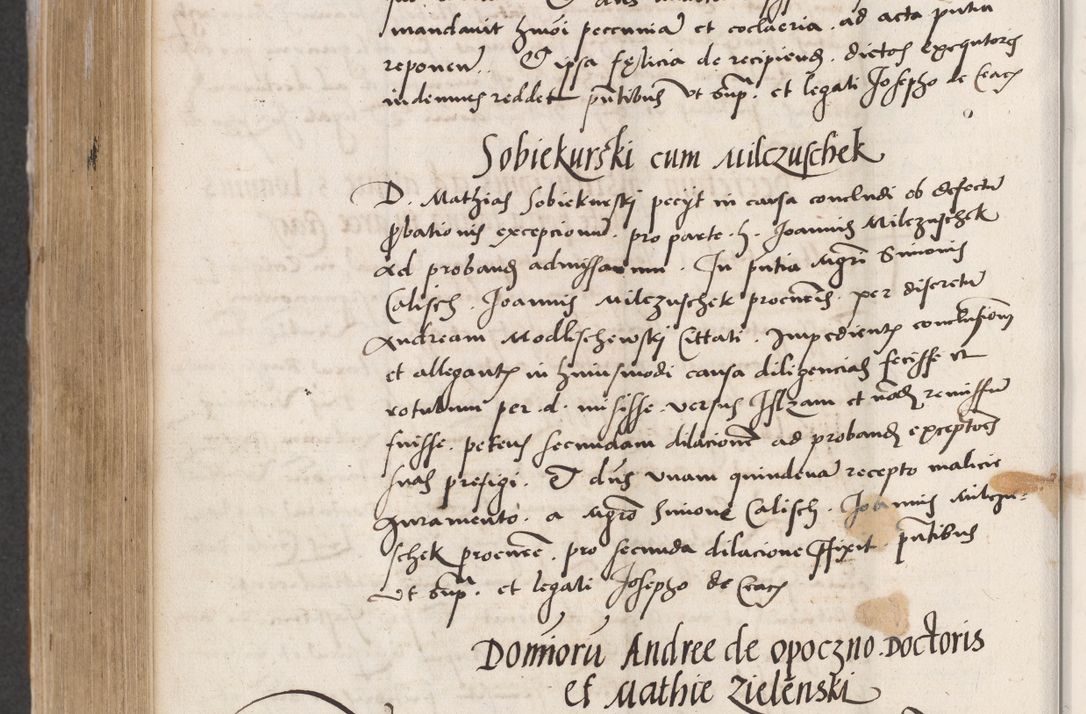 mandavit hmōi peccuniā et coclearia ad acta pūtia
reponerē. Et ipsa felicia de recipiend. dictos exequtores
indemnes reddet pūtibus Vt sup. et legati Josepho de Cracz
Sobiekurski cum Milczuschek
D. Mathias Sobiekurskj pecijt in causa concludi ob defectū
probationis excepcionū. pro parte h. Joannis Milczuschek
ad proband admissarum. In pūtia Mgri Simonis
Calisch. Joannis Milczuschek procuris. per discretū
Andream Modlischewskj Cittati. Impedientꝭ conclusionē
et allegantꝭ in huiusmodi causa diligencias fecisse et
rotulum per d. misisse versus Ilzam et nōd. remissū
fuisse. petens secundam dilacionē ad proband exceptōes
suas prefigi. Et dūs Vnam quindenā recepto malicie
Juramento. a Mgrō Simone Calisch. Joannis Milczu-
schek procurē. pro secunda dilacione prefixit pūtibus
Vt sup. et legati Josepho de Cracz
Dominorū Andree de Opoczno Doctoris
et Mathie Zielenski